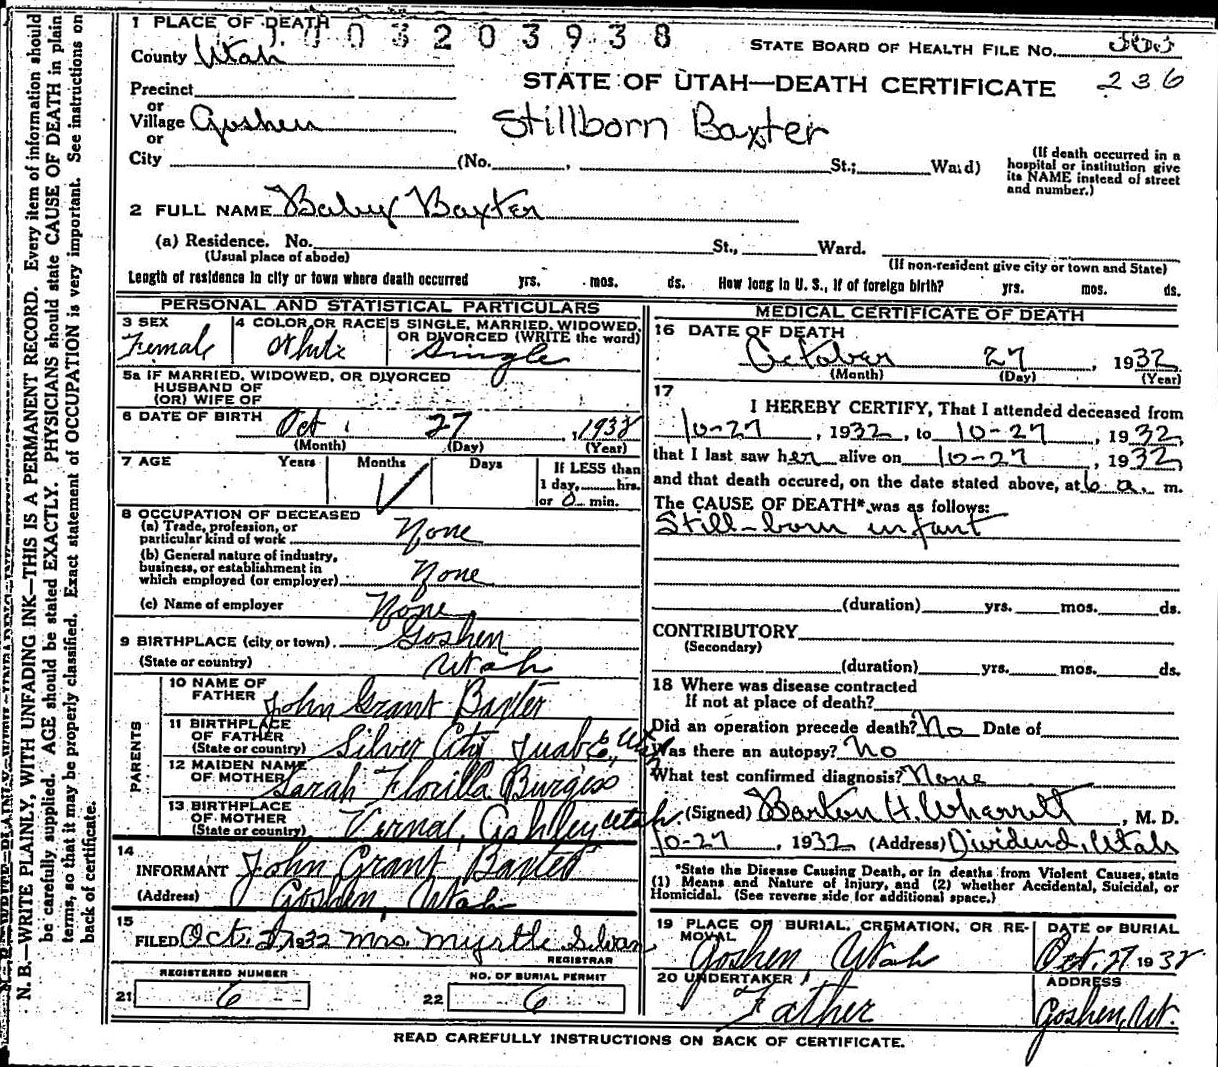 1 PLACE OF DEATH
1003203938
STATE BOARD OF HEALTH FILE No.
County Utah
236
STATE OF UTAH—DEATH CERTIFICATE
Precinct
or
Village Goshen
Stillborn Baxter
or
City (No. , St.; Ward)
(If death occurred in a hospital or institution give its NAME instead of street and number.)
2 FULL NAME Baby Baxter
(a) Residence. No. St., Ward.
(Usual place of abode)
(If non-resident give city or town and State)
Length of residence in city or town where death occurred yrs. mos. ds. How long in U. S., if of foreign birth? yrs. mos. ds.
PERSONAL AND STATISTICAL PARTICULARS
3 SEX
Female
4 COLOR OR RACE
White
5 SINGLE, MARRIED, WIDOWED,
OR DIVORCED (WRITE the word)
Single
5a IF MARRIED, WIDOWED, OR DIVORCED
HUSBAND OF
(OR) WIFE OF
6 DATE OF BIRTH Oct. 27, 1932
(Month) (Day) (Year)
7 AGE Years Months Days
If LESS than
1 day, hrs.
or 0 min.
8 OCCUPATION OF DECEASED
(a) Trade, profession, or
particular kind of work None
(b) General nature of industry,
business, or establishment in
which employed (or employer) None
(c) Name of employer None
9 BIRTHPLACE (city or town) Goshen
(State or country) Utah
PARENTS
10 NAME OF
FATHER John Grant Baxter
11 BIRTHPLACE
OF FATHER
(State or country) Silver City Juab Co, Utah
12 MAIDEN NAME
OF MOTHER Sarah Florilla Burgess
13 BIRTHPLACE
OF MOTHER
(State or country) Vernal, Ashley Utah
14
INFORMANT John Grant Baxter
(Address) Goshen, Utah
15
FILED Oct. 27 1932 Mrs. Myrtle Silvan
REGISTRAR
REGISTERED NUMBER
21 6
NO. OF BURIAL PERMIT
22 6
MEDICAL CERTIFICATE OF DEATH
16 DATE OF DEATH
October 27, 1932
(Month) (Day) (Year)
17
I HEREBY CERTIFY, That I attended deceased from
10-27, 1932, to 10-27, 1932,
that I last saw her alive on 10-27, 1932
and that death occured, on the date stated above, at 6 a. m.
The CAUSE OF DEATH* was as follows:
Still-born infant
(duration) yrs. mos. ds.
CONTRIBUTORY
(Secondary)
(duration) yrs. mos. ds.
18 Where was disease contracted
If not at place of death?
Did an operation precede death? No Date of
Was there an autopsy? No
What test confirmed diagnosis? None
(Signed) Barton H. Wherritt, M. D.
10-27, 1932 (Address) Dividend, Utah
*State the Disease Causing Death, or in deaths from Violent Causes, state
(1) Means and Nature of Injury, and (2) whether Accidental, Suicidal, or
Homicidal. (See reverse side for additional space.)
19 PLACE OF BURIAL, CREMATION, OR RE-
MOVAL
Goshen Utah
DATE OF BURIAL
Oct. 27 1932
20 UNDERTAKER
Father
ADDRESS
Goshen, Ut.
READ CAREFULLY INSTRUCTIONS ON BACK OF CERTIFICATE.
N. B.—WRITE PLAINLY, WITH UNFADING INK—THIS IS A PERMANENT RECORD. Every item of information should
be carefully supplied. AGE should be stated EXACTLY. PHYSICIANS should state CAUSE OF DEATH in plain
terms, so that it may be properly classified. Exact statement of OCCUPATION is very important. See instructions on
back of certificate.